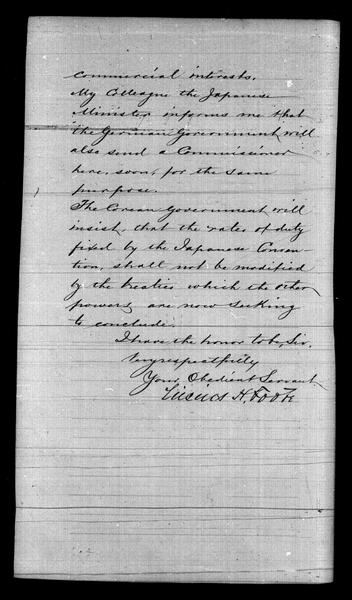 commercial interests.
My Colleague the Japanese
Minister informs me that
the German Government will
also send a Commissioner
here, soon, for the same
purpose.
The Corean Government will
insist, that the rates of duty
fixed by the Japanese Conven-
tion, shall not be modified
by the treaties which the other
powers are now seeking
to conclude.
I have the honor to be, Sir,
Very respectfully
Your Obedient Servant
Lucius H. Foote